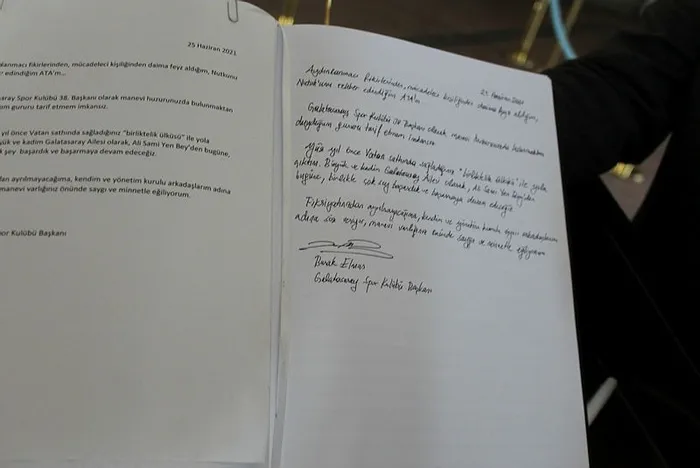 25 Haziran 2021
lanmacı fikirlerinden, mücadeleci kişiliğinden daima feyz aldığım, Nutkunu
edindiğim ATA'm...
aray Spor Kulübü 38. Başkanı olarak manevi huzurunuzda bulunmaktan
um gururu tarif etmem imkansız.
yıl önce Vatan sathında sağladığınız "birliktelik ülküsü" ile yola
yük ve kadim Galatasaray Ailesi olarak, Ali Sami Yen Bey'den bugüne,
k şey başardık ve başarmaya devam edeceğiz.
dan ayrılmayacağıma, kendim ve yönetim kurulu arkadaşlarım adına
manevi varlığınız önünde saygı ve minnetle eğiliyorum.
por Kulübü Başkanı
25 Haziran 2021
Aydınlanmacı fikirlerinden, mücadeleci kişiliğinden daima feyz aldığım,
Nutuk'unu rehber edindiğim ATA'm
Galatasaray Spor Kulübü 38. Başkanı olarak manevi huzurunuzda bulunmaktan
duyduğum gururu tarif etmem imkansız
Yüz yıl önce Vatan sathında sağladığınız "birliktelik ülküsü" ile yola
çıktık. Büyük ve kadim Galatasaray Ailesi olarak, Ali Sami Yen Bey'den
bugüne, birlikte çok şey başardık ve başarmaya devam edeceğiz
Fikriyatınızdan ayrılmayacağıma, kendim ve yönetim kurulu arkadaşlarım
adına söz veriyor, manevi varlığınız önünde saygı ve minnetle eğiliyorum
Burak Elmas
Galatasaray Spor Kulübü Başkanı